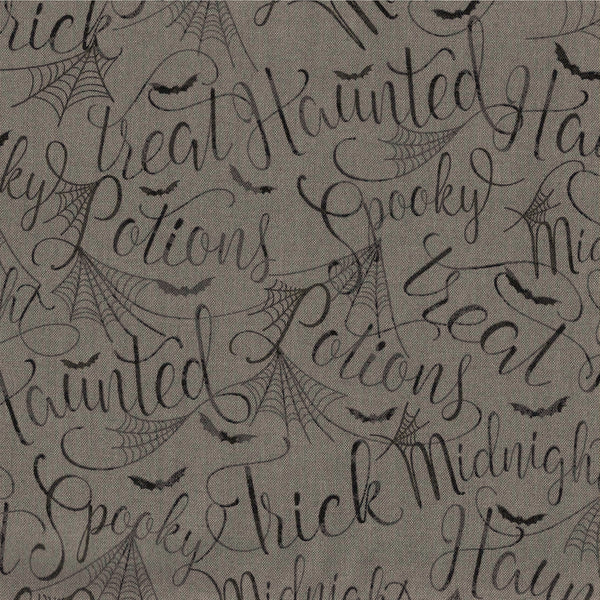 Trick
treat Haunted Hau
ky Potions Spooky Mid
ht Potions treat
Haunted Midnigh
Spooky Trick
Midnight Haun